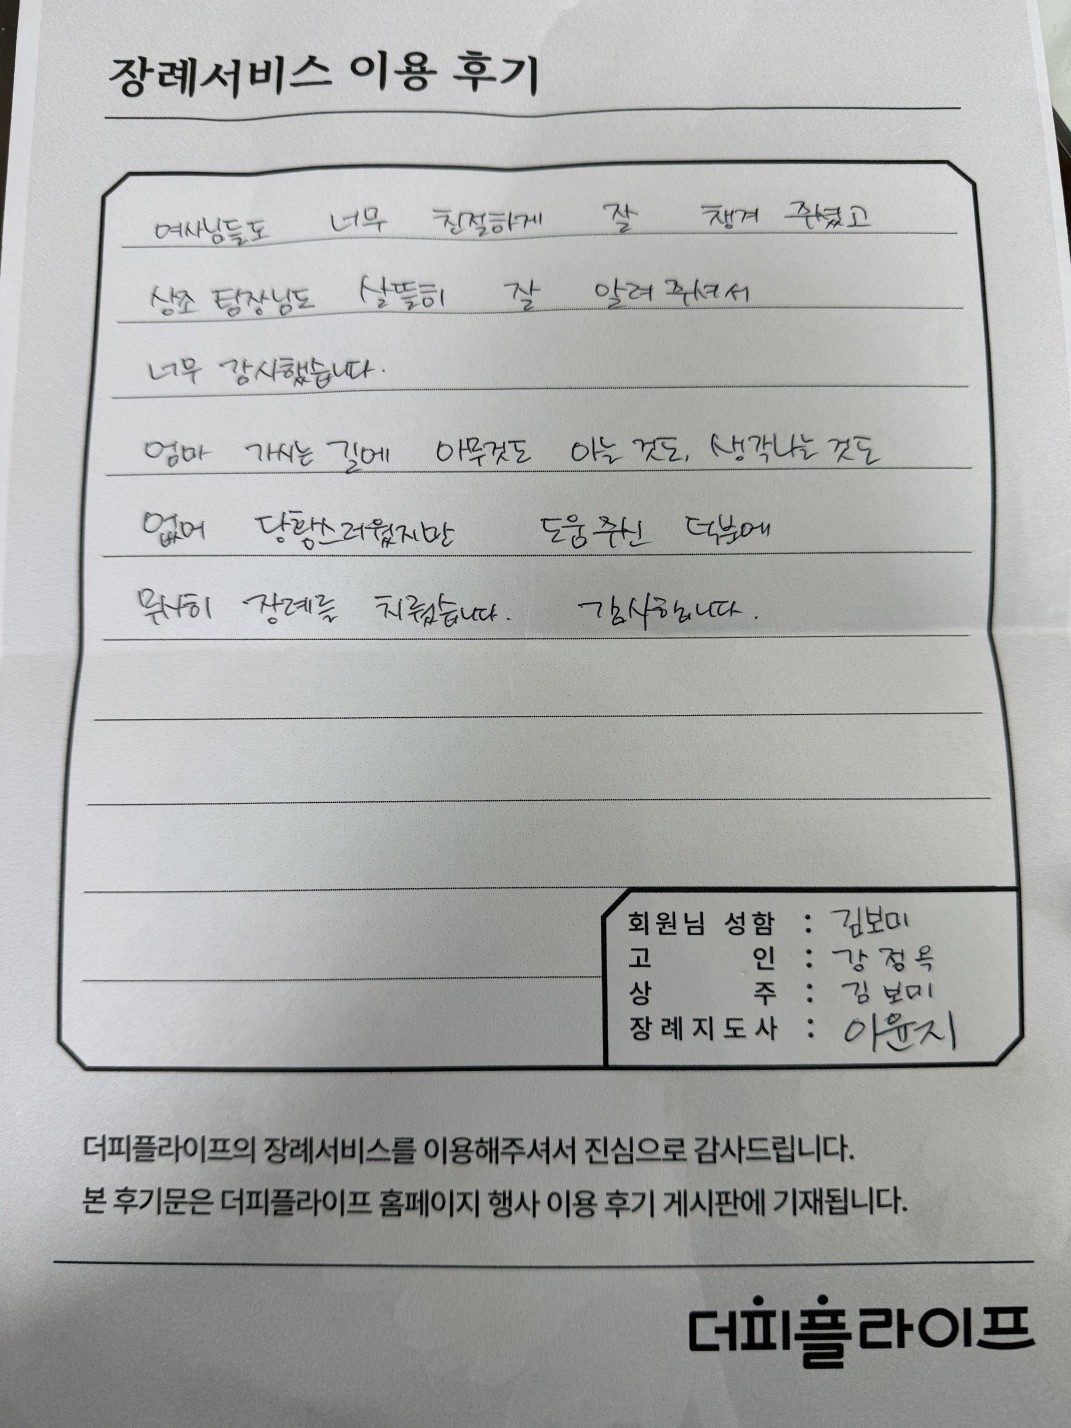 장례서비스 이용 후기
여사님들도 너무 친절하게 잘 챙겨 주셨고
상조 팀장님도 살뜰히 잘 알려 주셔서
너무 감사했습니다.
엄마 가시는 길에 아무것도 아는 것도, 생각나는 것도
없어 당황스러웠지만 도움 주신 덕분에
무사히 장례를 치뤘습니다. 감사합니다.
회원님 성함 : 김보미
고 인 : 강정옥
상 주 : 김보미
장례지도사 : 이윤지
더피플라이프의 장례서비스를 이용해주셔서 진심으로 감사드립니다.
본 후기문은 더피플라이프 홈페이지 행사 이용 후기 게시판에 기재됩니다.
더피플라이프